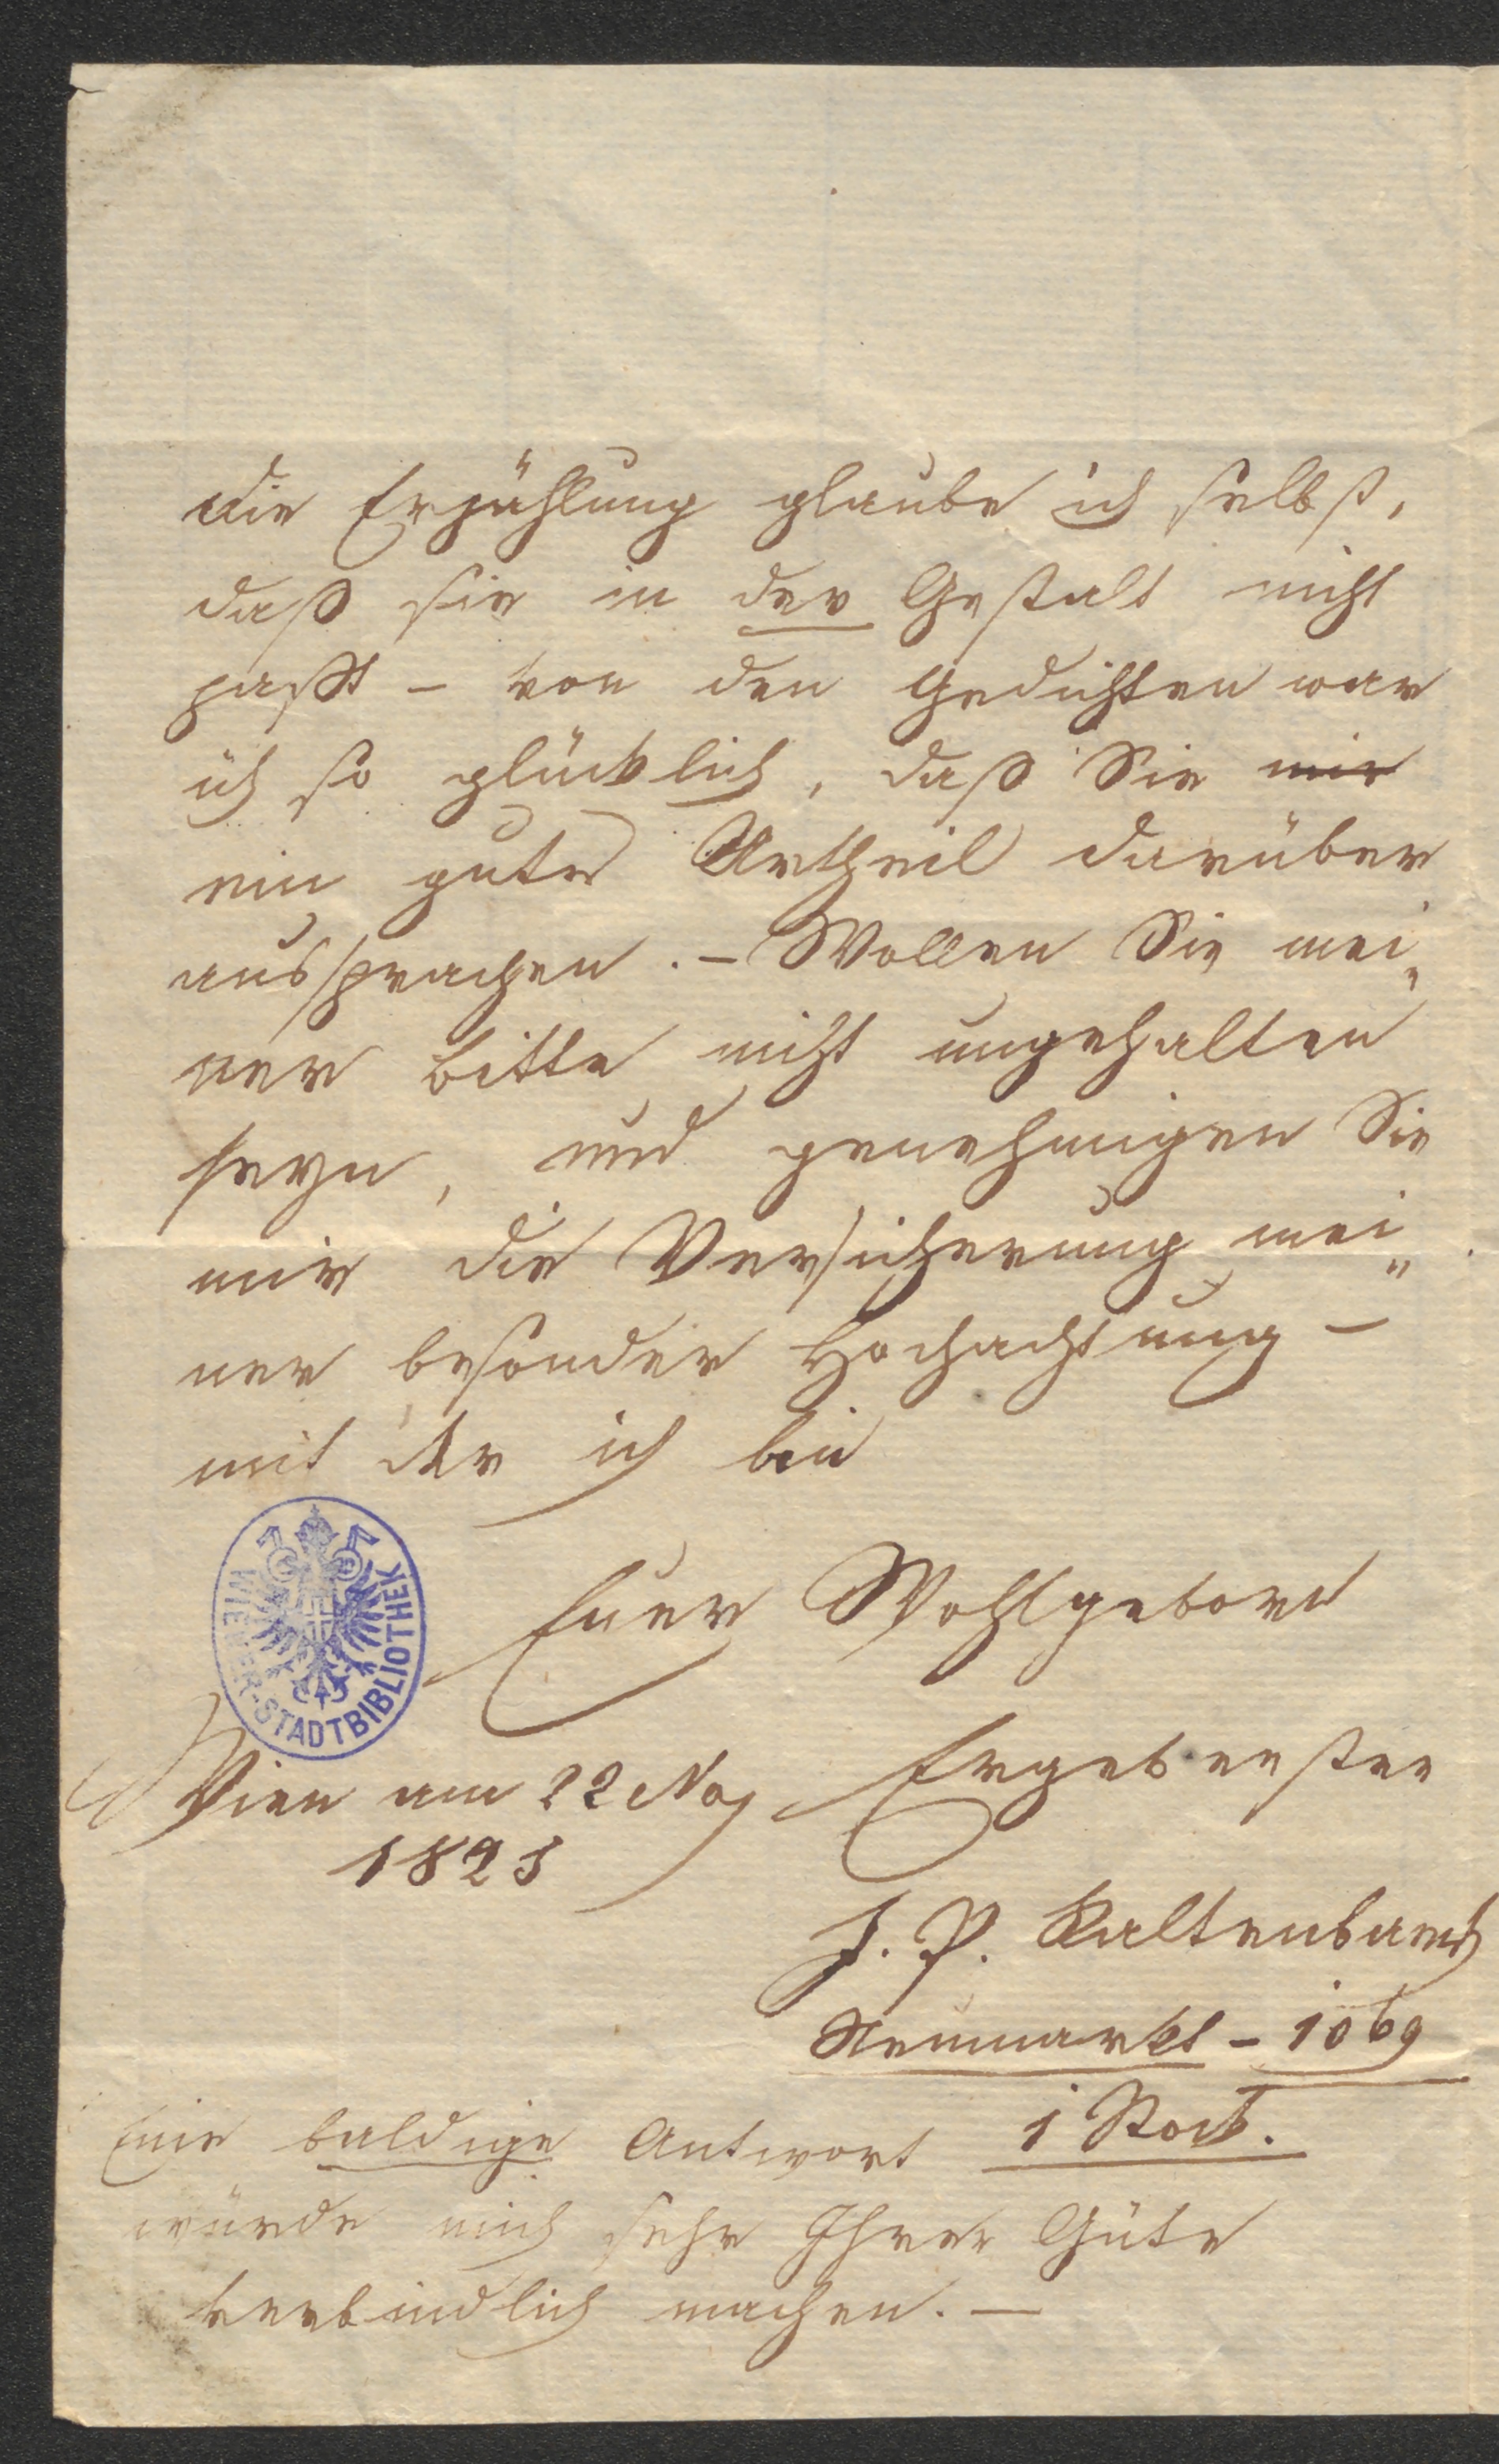 die Erzählung glaube ich selbst,
daß sie in der Gestalt nicht
paßt – von den Gedichten war
ich so glücklich, daß Sie mir
ein gutes Urtheil darüber
aussprachen. – Wollen Sie mei„
ner Bitte nicht ungehalten
seyn, und genehmigen Sie
mir die Versicherung mei„
ner besonder Hochachtung –
mit der ich bin
Euer Wohlgeborn
WIENER-STADTBIBLIOTHEK
Ergebenster
Wien am 22 Nov
1825
J. P. Kaltenbaeck
Neumarkt – 1069
1 Stock.
Eine baldige Antwort
würde mich sehr Ihrer Güte
verbindlich machen. –